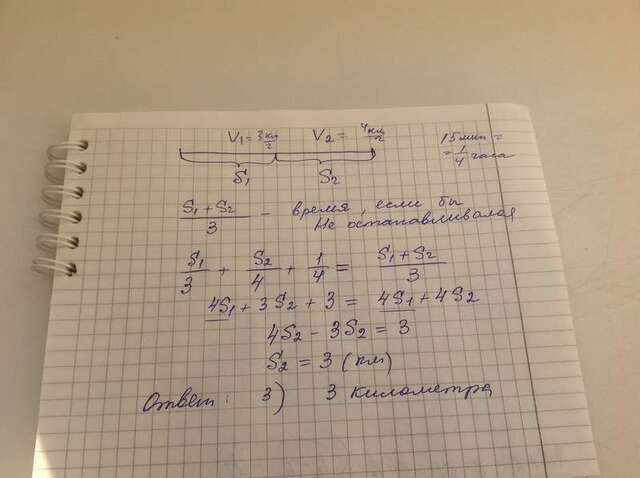 V₁ = 3 км/ч V₂ = 4 км/ч 15 мин =
= 1/4 часа
S₁ S₂
(S₁ + S₂)/3 - время, если бы
не останавливался
S₁/3 + S₂/4 + 1/4 = (S₁ + S₂)/3
4S₁ + 3S₂ + 3 = 4S₁ + 4S₂
4S₂ - 3S₂ = 3
S₂ = 3 (км)
Ответ: 3) 3 километра